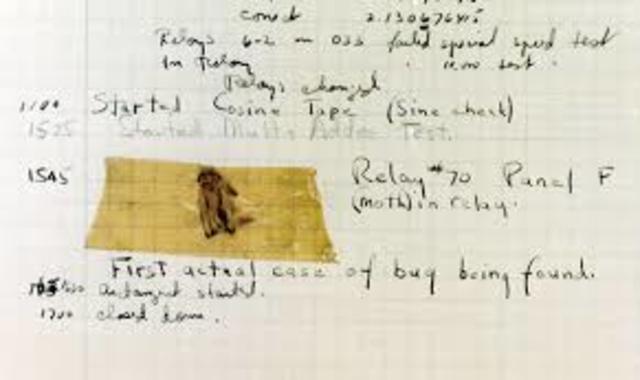 correct 2.130676415
Relays 6-2 in 033 failed special speed test
In Relay test.
Relays changed
1100 Started Cosine Tape (Sine check)
1525 Started Multi Adder Test.
1545 Relay #70 Panel F
(moth) in relay.
First actual case of bug being found.
started.
1700 closed down.